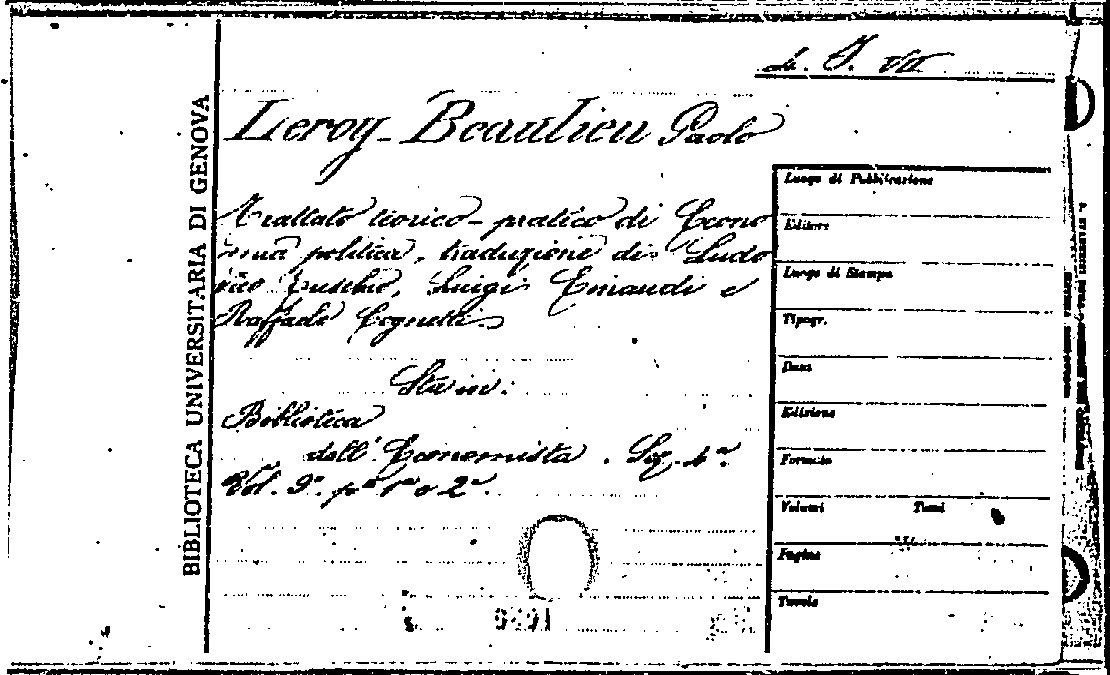 4. J. VII
BIBLIOTECA UNIVERSITARIA DI GENOVA
Leroy-Beaulieu Paolo
Trattato teorico-pratico di Econo
mia politica, traduzione di Ludo
vico Eusebio, Luigi Einaudi e
Raffaele Cognetti.
Sta in:
Biblioteca
dell'Economista. Ser. 4ª.
Vol. 9°. pte 1ª e 2ª.
Luogo di Pubblicazione
Editore
Luogo di Stampa
Tipogr.
Data
Edizione
Formato
Volumi Tomi
Pagine
Tavole